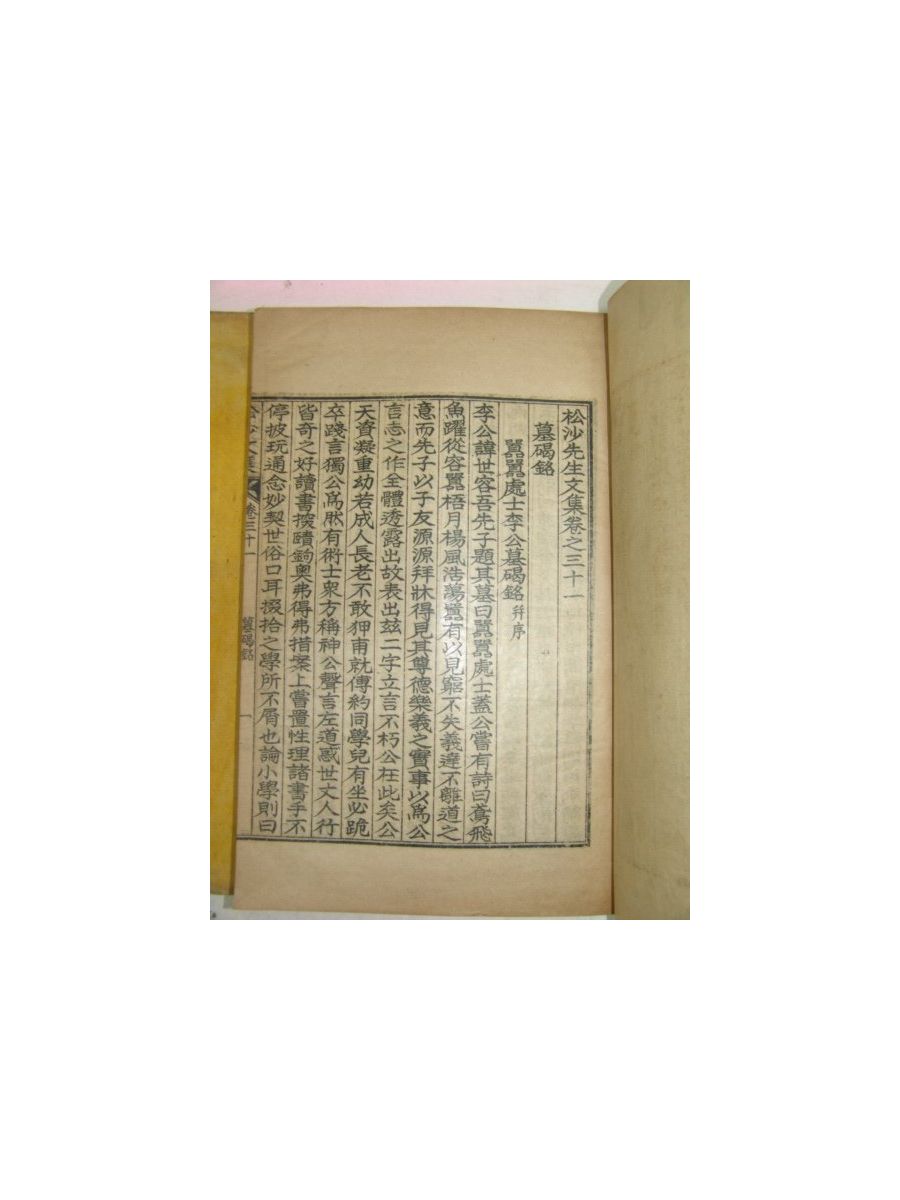 松沙先生文集卷之三十一
墓碣銘
囂囂處士李公墓碣銘 幷序
李公諱世容吾先子題其墓曰囂囂處士蓋公嘗有詩曰鳶飛
魚躍從容囂梧月楊風浩蕩囂有以見窮不失義達不離道之
意而先子以子友源源拜牀得見其尊德樂義之實事以爲公
言志之作全體透露出故表出玆二字立言不朽公在此矣公
天資凝重幼若成人長老不敢狎甫就傅約同學兒有坐必跪
卒踐言獨公爲肰有術士衆方稱神公聲言左道惑世丈人行
皆奇之好讀書探賾鉤奧弗得弗措案上嘗置性理諸書手不
停披玩通念妙契世俗口耳掇拾之學所不屑也論小學則曰
卷三十一
墓碣銘
一